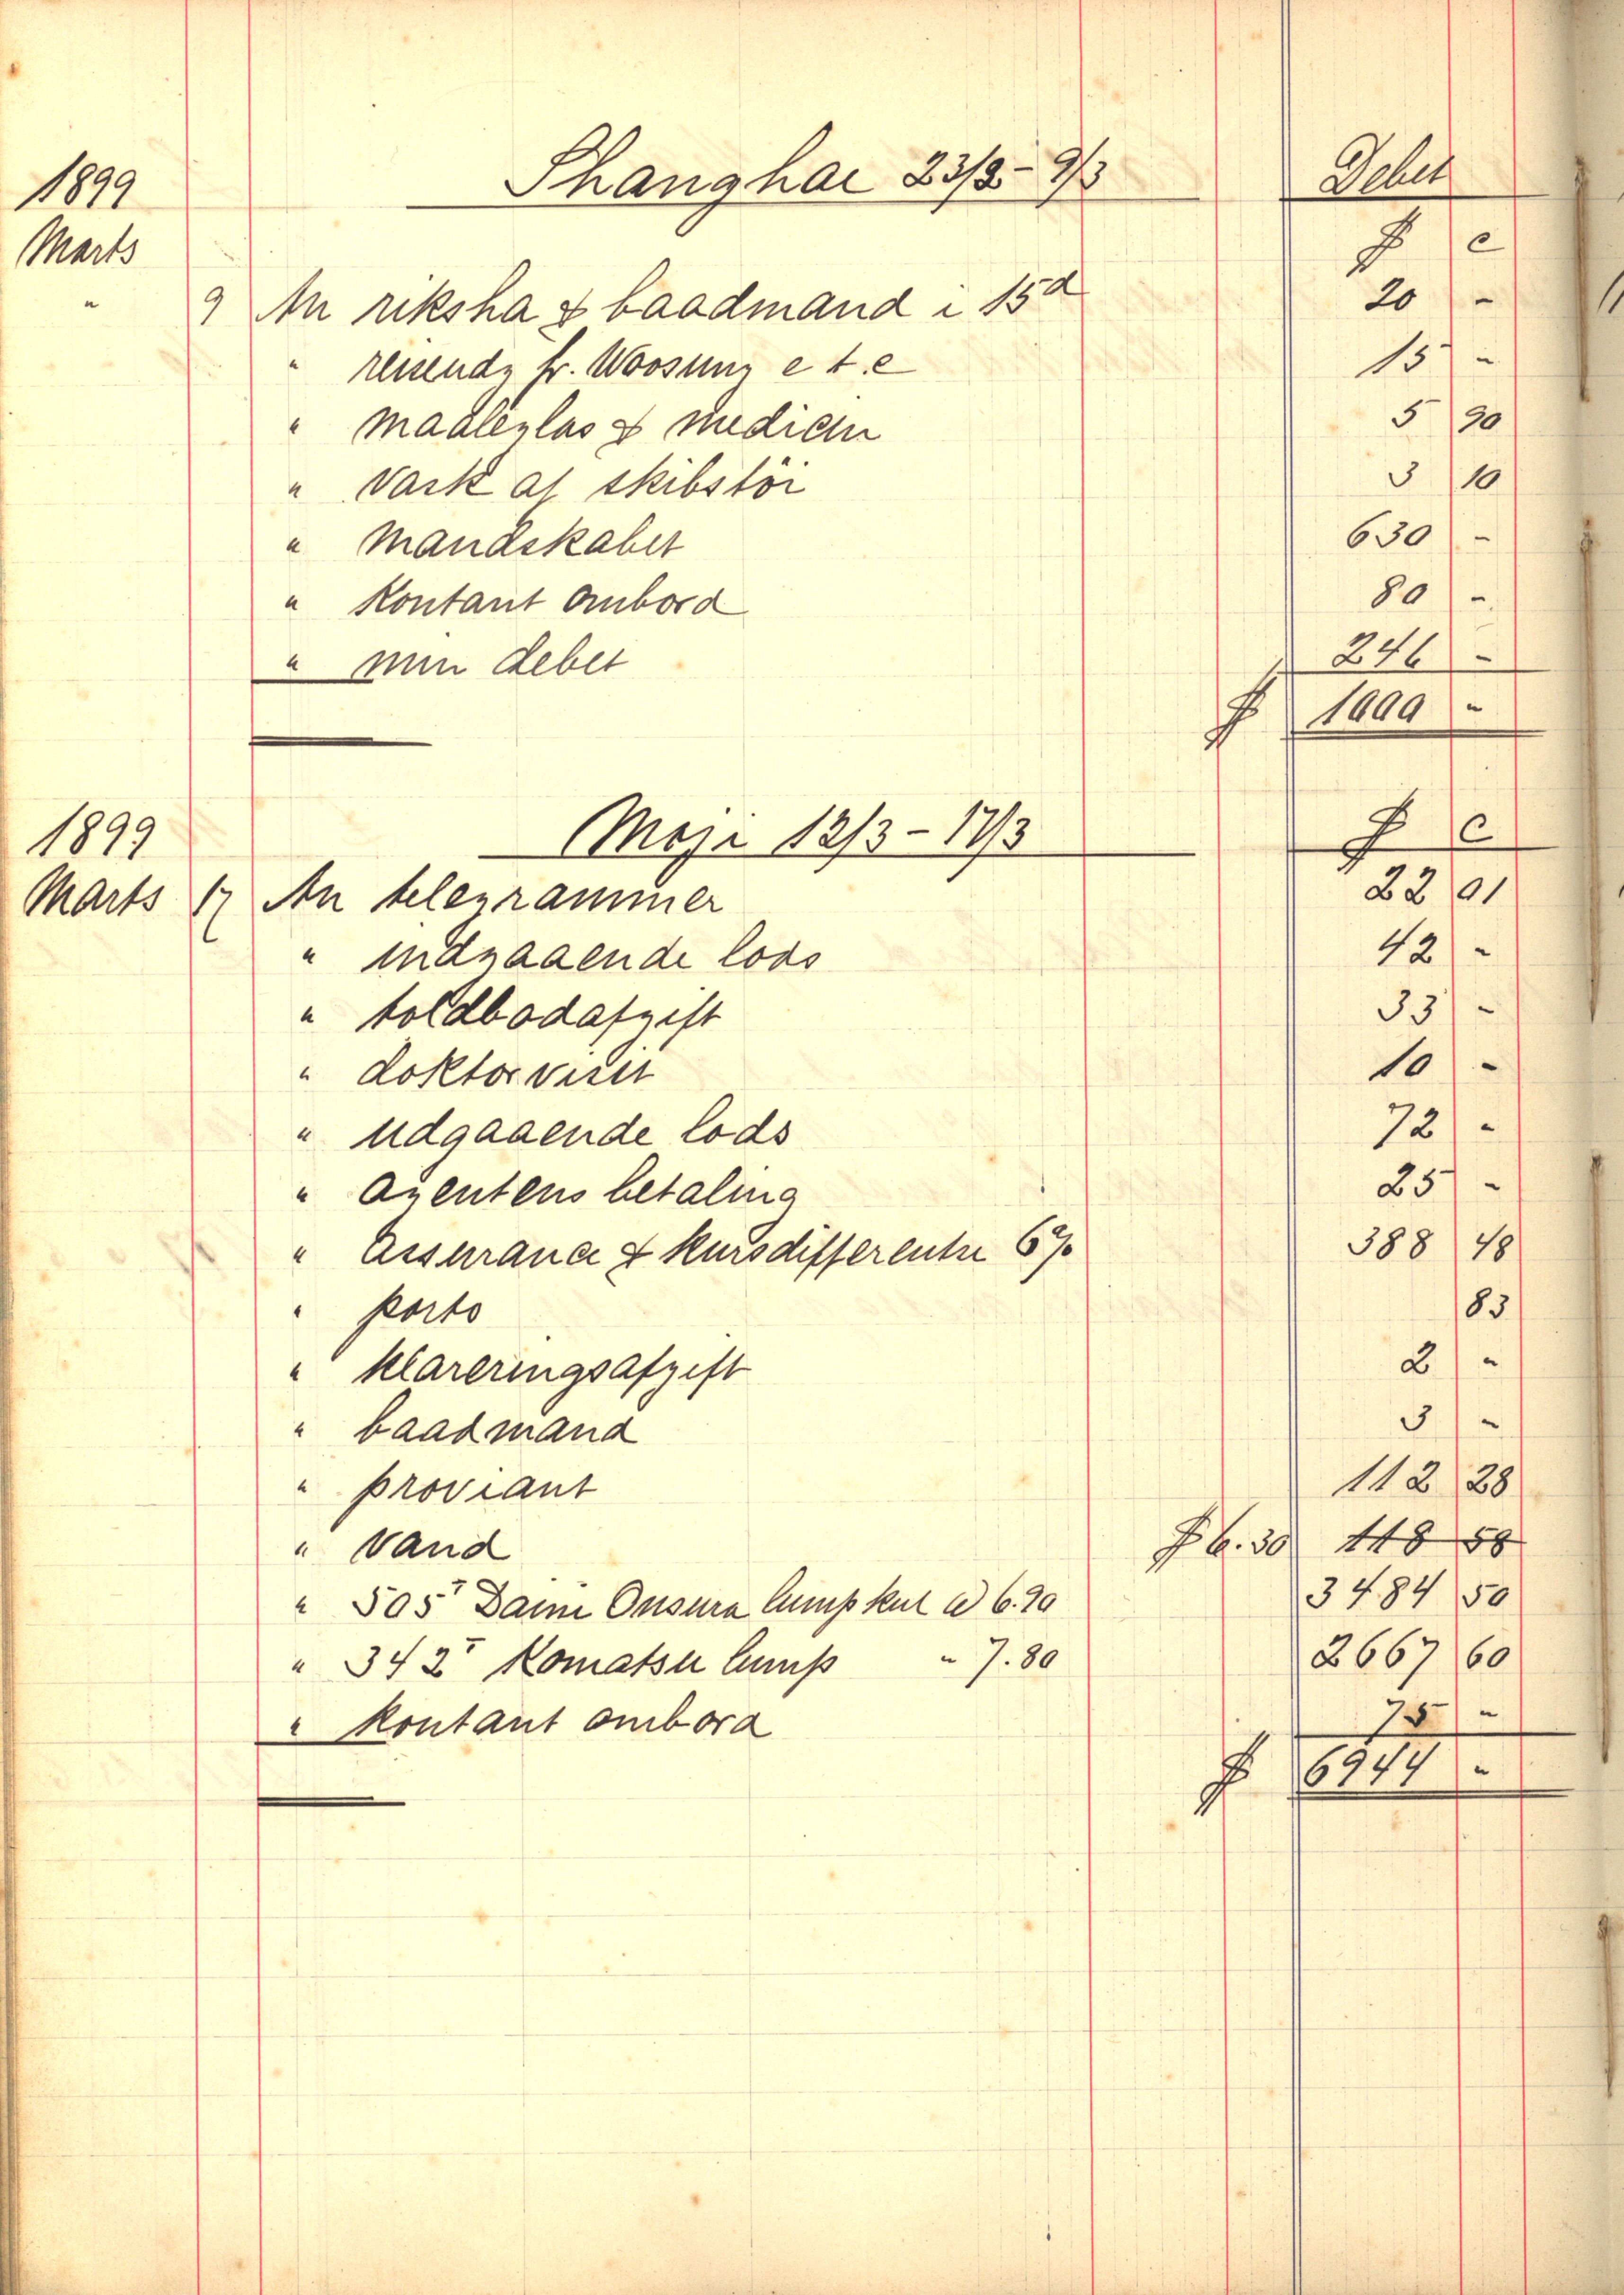 Shanghai 23/2 - 9/3 Debet
1899
Marts $ c
" 9 An riksha & baadmand i 15d 20 -
" reisende fr. Woosung etc 15 -
" maaleglas & medicin 5 90
" vask af skibstöi 3 10
" mandskabet 630 -
" kontant ombord 80 -
" min debet 246 -
$ 1000 -
1899 Moji 12/3 - 17/3 $ c
Marts 17 An telegrammer 22 01
" indgaaende lods 42 -
" toldbodafgift 33 -
" doktorvisit 10 -
" udgaaende lods 72 -
" agentens betaling 25 -
" assurance & kursdifferentse 6% 388 48
" porto 83
" klareringsafgift 2 -
" baadmand 3 -
" proviant 112 28
" vand $ 6.30 118 58
" 505T Onsura lump kul @ 6.90 3484 50
" 342T Komatsu lump " 7.80 2667 60
" kontant ombord 75 -
$ 6944 -